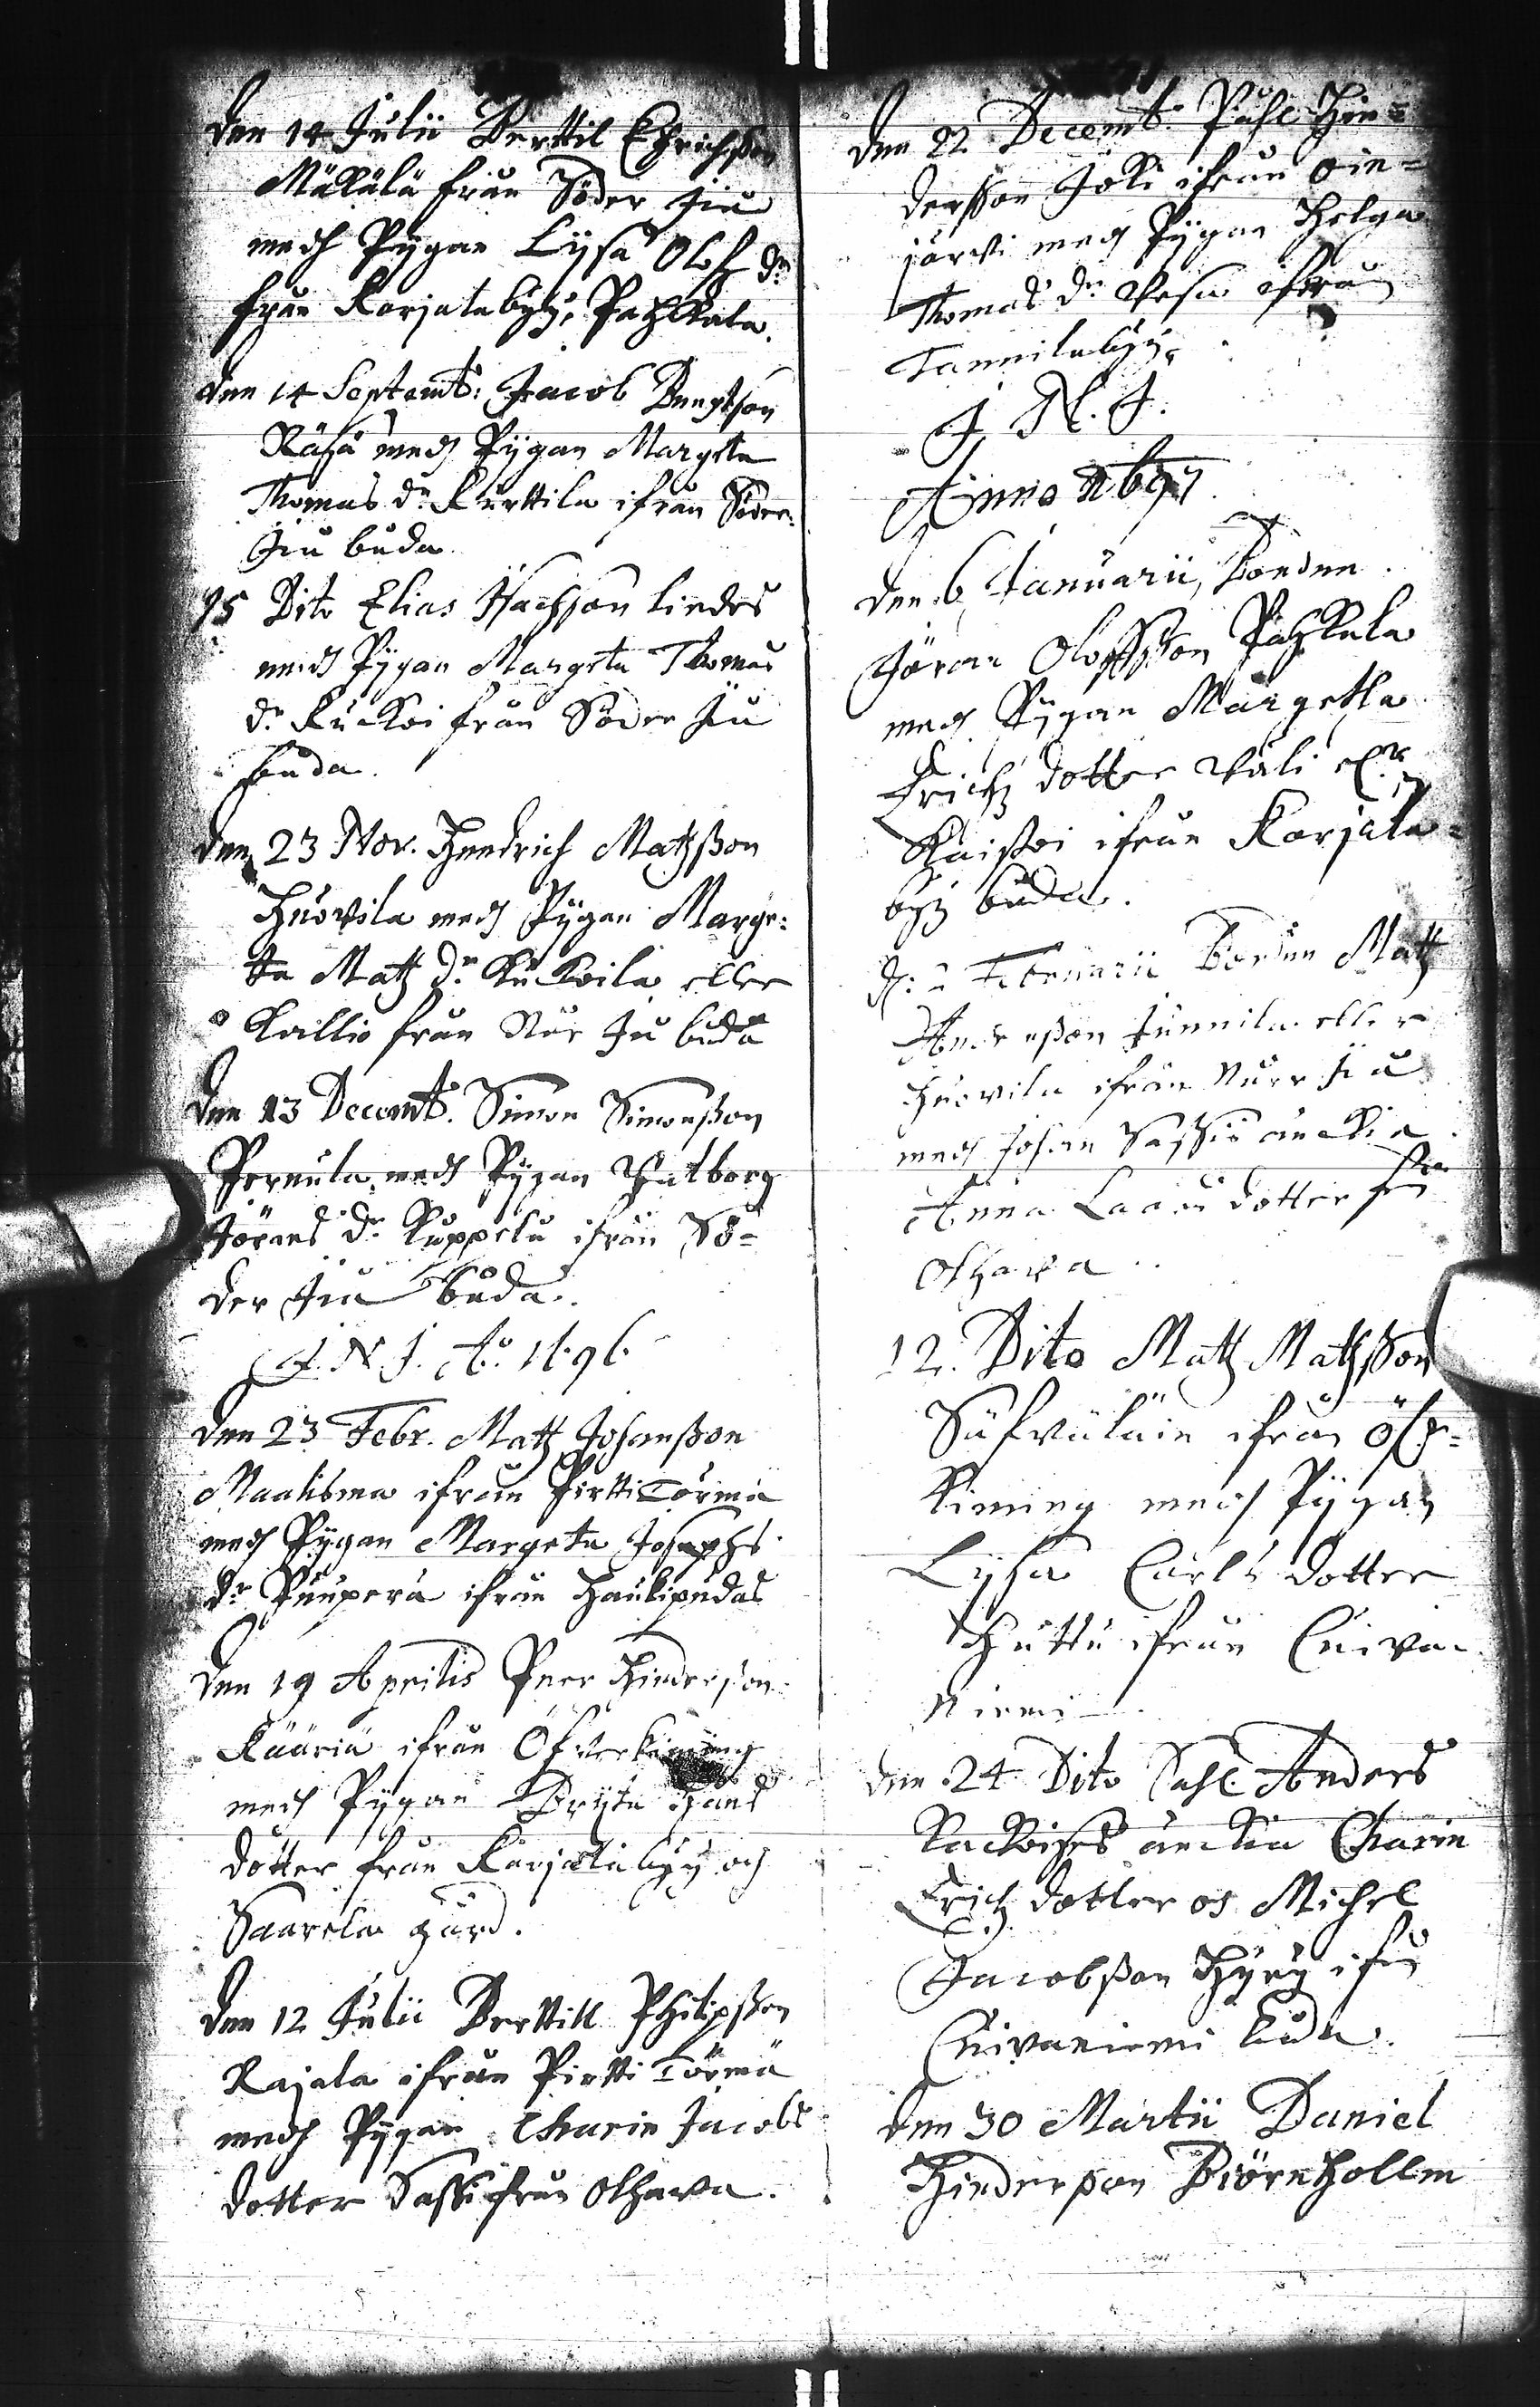 Den 14 Julii Berttil Ehrichsson
Mäkälä från Söder Jiu
medh Pygan Lysa Olofz dr
från Karjalabÿ, Pahkala.
Den 14 Septemb: Jacob Bengtson
Räsä medh Pygan Margeta
Thomas dr Kurttila ifrån Söder
Jiu båda
15 Dito Elias Isachson Liedes
medh Pygan Margeta Thomas
dr Kuckoi från Söder Jiu
båda.
Den 23 Nov. Hendrich Matzßon
Huovila medh Pygan Marge:
ta Matz dr Kuckoila eller
Kallio från Nor Ju båda
Den 13 Decemb. Simon Simonßon
Pernula medh Pygan Walborg
Jörans dr Kuppelu ifrån Sö=
der Jiu båda.
J. N. J. Ao. 1696.
Den 23 Febr. Matz Johanßon
Maalismaa ifrån Pirtti Törmä
medh Pygan Margeta Josephs
dr Puuperä ifrån Haukipudas
Den 19 Aprilis Peer Hinderßon
Kääriä ifrån Öfverkiiming
medh Pygan Bryta Hans
dotter från Karjalabÿ och
Saarela gård.
Den 12 Julii Berttill Philipßon
Rajala ifrån Pirtti Törmä
medh Pygan Charin Jacobs
dotter Sassi från Olhava.
Den 22 Decemb. Påhl Hin=
dersson Joki ifrån Oie=
järvi medh Pygan Helga
Thomas dr Vesa ifrån
Tannilabÿ.
J. N. J.
Anno 1697
Den 6 Januarii, Bonden
Jöran Oloffsson Pahkala
medh Pygan Margetha
Erichz dotter Wäli elr
Kaisoi ifrån Karjala=
bÿ båda.
d: 2 Februarii Bonden Matz
Andersßon Junnila eller
Huovila ifrån Nurr Jiu
medh Johan Sassis änckia
Anna Lars dotter fr
Olhava.
12. Dito Matz Matzsson
Säfvälain ifrån Öfr=
kiming medh Pygan
Lysa Carls dotter
Huttu ifrån Cuiva
niemi
Den 24 Dito Sahl. Anders
Kackois änckia Charin
Erichz dotter og Michel
Jacobßon Hyry ifrå
Cuivaniemi båda.
Den 30 Martii Daniel
Hinderßon Biörnholm